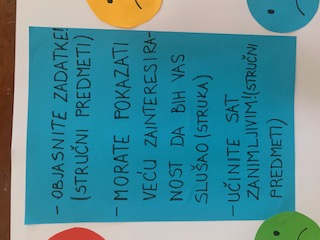 - OBJASNITE ZADATKE!
(STRUČNI PREDMETI)
- MORATE POKAZATI
VEĆU ZAINTERESIRA-
NOST DA BIH VAS
SLUŠAO (STRUKA)
- UČINITE SAT
ZANIMLJIVIM! (STRUČNI
PREDMETI)